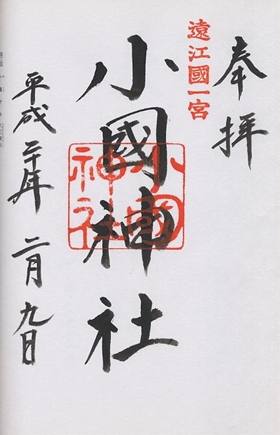 奉拝
遠江國一宮
小國神社
小國神社
平成二十年 二月九日